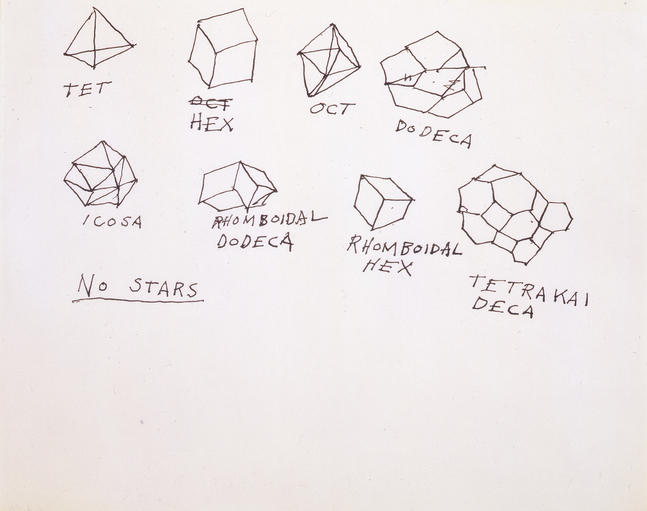 TET
OCT
HEX
OCT
DODECA
ICOSA
RHOMBOIDAL
DODECA
RHOMBOIDAL
HEX
TETRAKAI
DECA
NO STARS